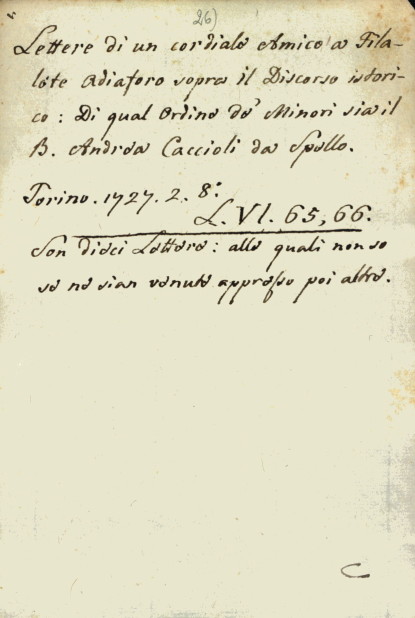 26)
Lettere di un cordiale Amico a Fila-
lete Adiaforo sopra il Discorso istori-
co: Di qual Ordine de' Minori sia il
B. Andrea Caccioli da Spello.
Torino. 1727. 2. 8º.
L. VI. 65, 66.
Son dieci Lettere: alle quali non so
se ne sian venute appresso poi altre.